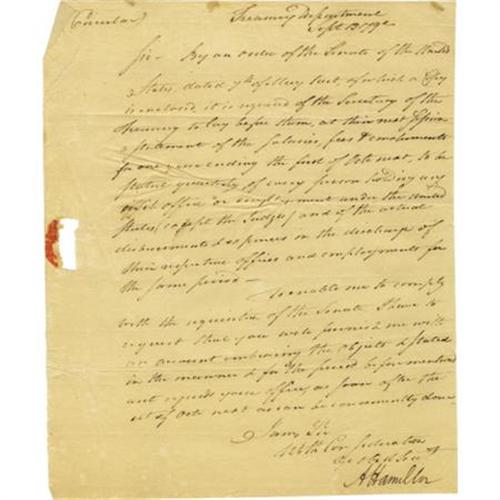 (Circular)
Treasury Department
Sept 13 1792
Sir - By an order of the Senate of the United
States, dated 7th of May last, of which a Copy
is enclosed, it is required of the Secretary of the
Treasury to lay before them, at their next Session
a statement of the Salaries, fees & emoluments
for one year ending the first of Octo next, to be
stated quarterly of every person holding any
civil office or employment under the United
States, except the Judges; and of the actual
disbursements & expences in the discharge of
their respective offices and employments for
the same period -
To enable me to comply
with the requisition of the Senate I have to
request that you will furnish me with
an account embracing the objects & stated
in the manner & for the period before mentioned
as respects your office, as soon after the
of Octo next as can be conveniently done.
I am, Sir
with Consideration
Yr Obed Ser
A Hamilton